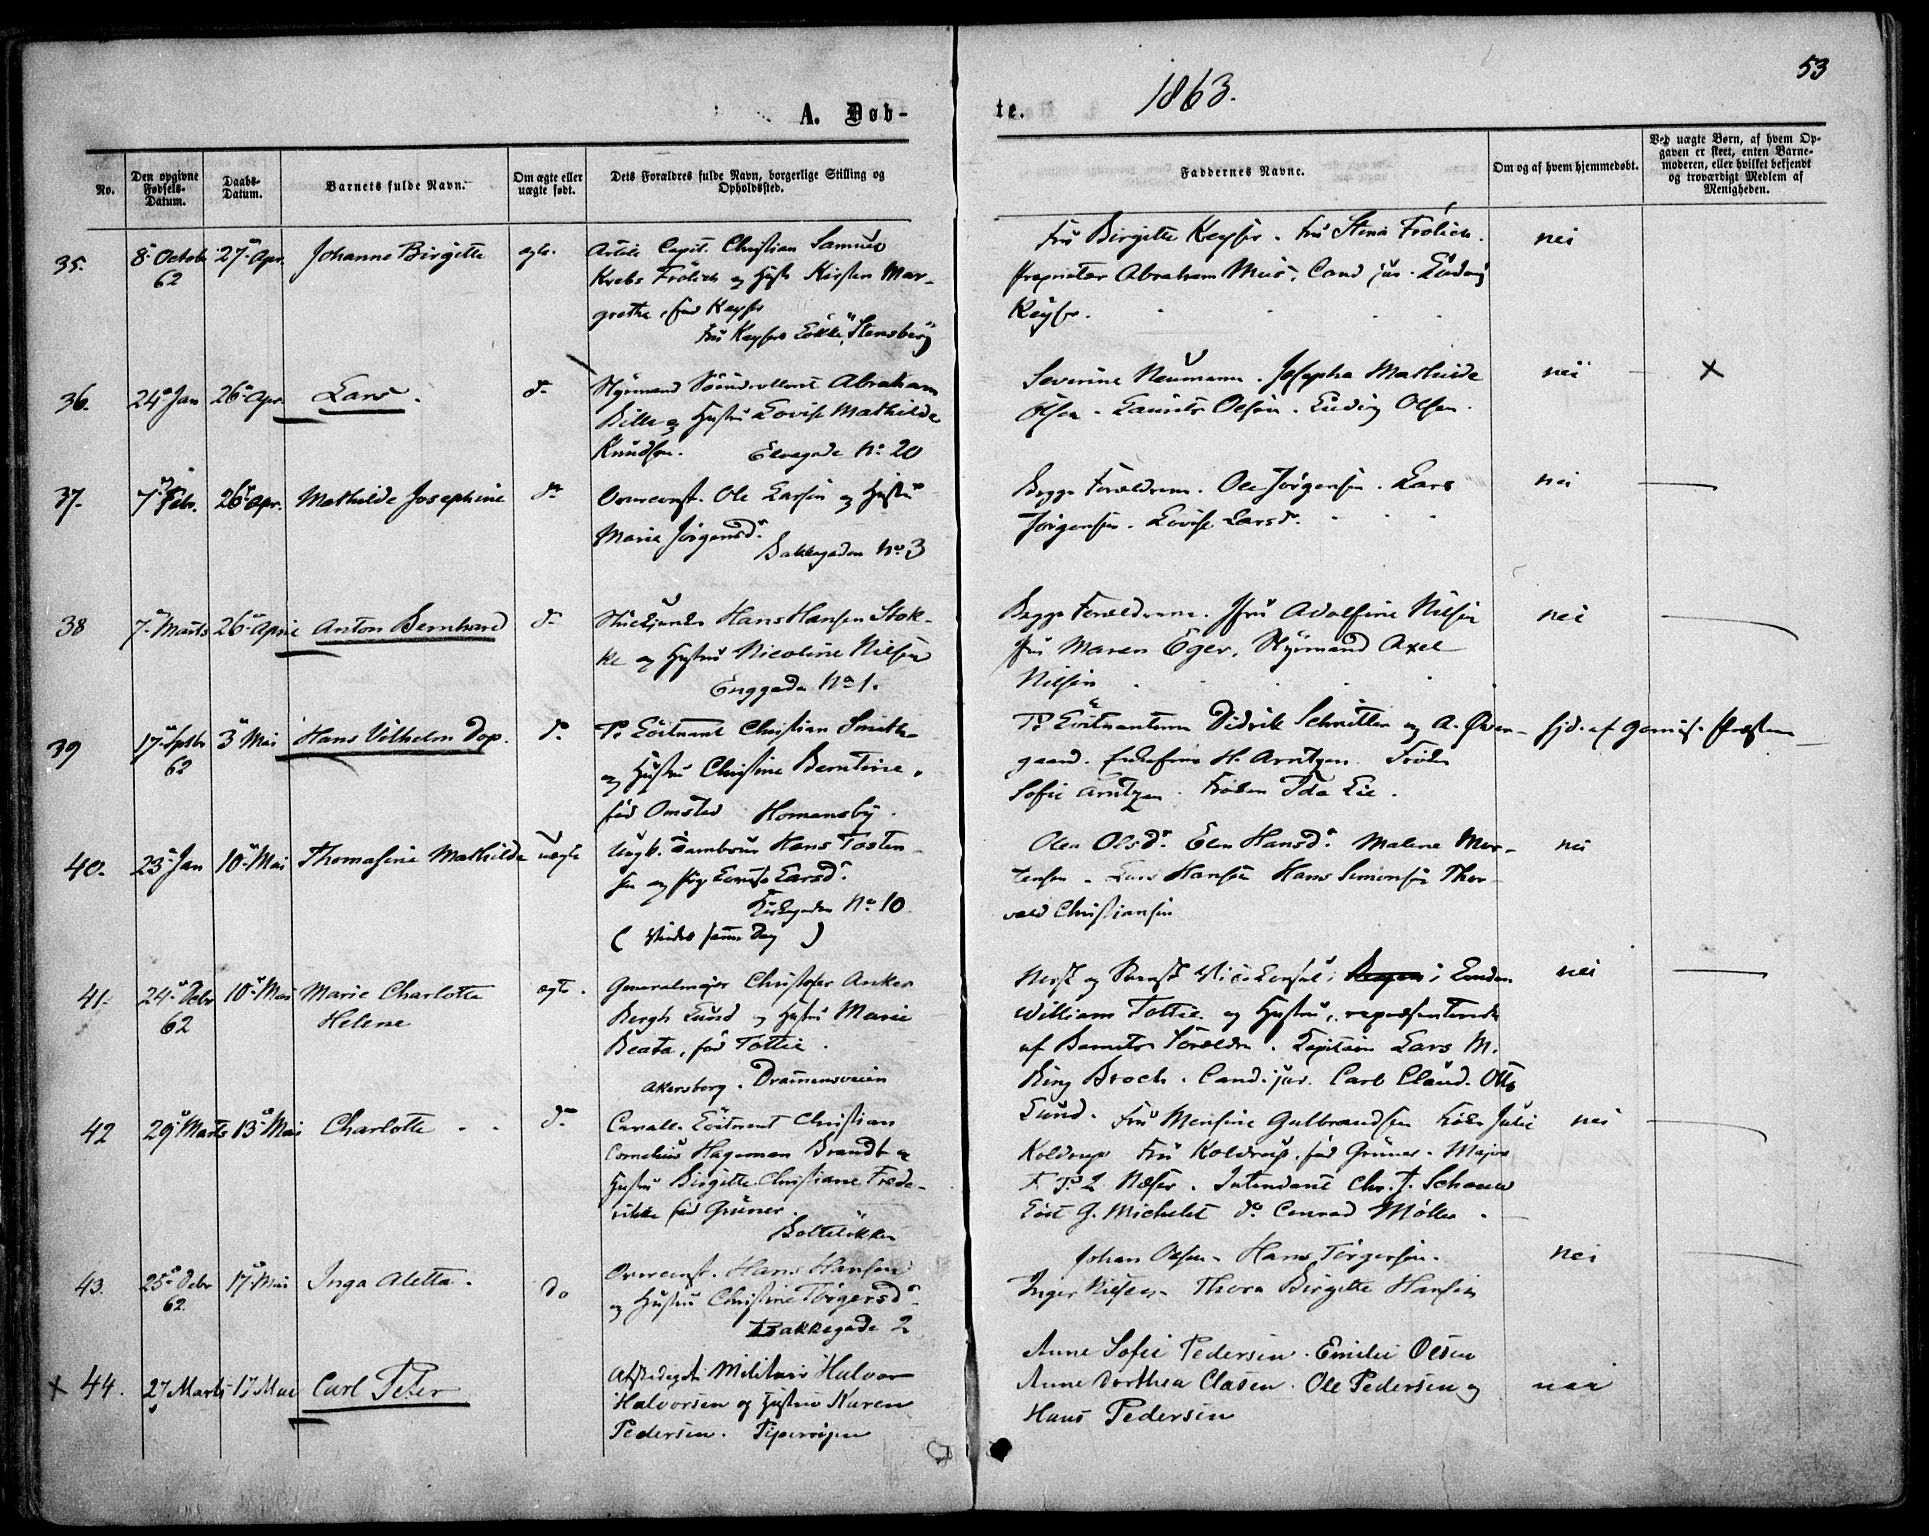 53
1863.
A. Døb-
te.
No.
Den opgivne Fødsels-Datum.
Daabs-Datum.
Barnets fulde Navn.
Om ægte eller uægte født.
Dets Forældres fulde Navn, borgerlige Stilling og Opholdssted.
Faddernes Navne.
Om og af hvem hjemmedøbt.
Ved uægte Børn, af hvem Opgaven er skeet, enten Barnemoderen, eller hvilket bekjendt og troværdigt Medlem af Menigheden.
35. 8 Octob 27 Apr. Johanne Birgitte ægte. Capit. Christian Samuel
62 Krebs Frölich og Hustr Kirsten Mar-
grethe, fød Keyser
Fru Keysers Løkke, Stensberg
Fru Birgitte Keyser. Fru Stina Frölich. nei
Proprietær Abraham Cand jur. Ludvig
Keyser.
36. 24 Jan 26 Apr. Lars. do Styrmand Abraham
Bille og Hustru Lovise Mathilde
Knudsen. Elvegade No 20
Severine Neumann. Josepha Mathilde nei x
Olsen. Laurits Olsen. Ludvig Olsen.
37. 7 Febr. 26 Apr. Mathilde Josephine do Ole Larsen og Hustru
Marie Jörgensd.
Bakkegaden No 3
Begge Forældrene. Ole Jörgensen. Lars nei
Jörgensen. Lovise Larsd.
38 7 Marts 26 April Anton Bernhard do Hans Hansen Stok-
ke og Hustru Nicoline Nilsen
Enggade No 1.
Begge Forældrene. Jfru Adolfine Nilsen nei
Fru Maren Eger, Styrmand Axel
Nilsen
39 17 Septbr 3 Mai Hans Vilhelm Dop. do Pr Löitnant Christian Smith
62 og Hustru Christine Berntine,
fød Omsted Homansby.
Pr Löitnanterne Didrik Schnitler og A. Øver- hjd. af
gaard. H. Arntzen. Frøken
Sofie Arntzen. Frøken Ida Lie.
40. 23 Jan 10 Mai Thomasine Mathilde uægte Ungk. Tambour Hans Tosten-
sen og Pige Lovise Larsd.
Kirkegaden No 10
( Viede samme Dag )
Olea Olsd. Elen Hansd. Malene Mor- nei
tensen. Lars Hansen Hans Simonsen Thor-
vald Christiansen
41. 24 Debr 10 Mai Marie Charlotte ægte. Generalmajor Christofer Anker
62 Helene Bergh Lund og Hustru Marie
Beata, fød Tottie.
Akersborg. Drammensveien
Norsk og Svensk Vice Consul i London nei
William Tottie og Hustru, repræsenterede
af Barnets Forældre. Kapitain Lars M.
Bing Broch. Cand. jur. Carl Claud. Otto
Lund.
42 29 Marts 13 Mai Charlotte do Cavalle. Löitnant Christian
Cornelius Hageman Brandt og
Hustru Birgitte Christiane Frede-
rikke fød Grüner.
Bolteløkken
Fru Mensine Gulbrandsen Frøken Julie nei
Koldrup Fru Koldrup, fød Grüner. Major
F. P. L. Næser. Intendant Chr. J. Schou
Löit G. Michelet do Conrad Møller.
43. 25 Debr 17 Mai Inga Aletta. do Hans Hansen
62 og Hustru Christine Törgersd
Bakkegade 2
Johan Olsen. Hans Törgersen. nei
Inger Nilsen. Thora Birgitte Hansen
x 44. 27 Marts 17 Mai Carl Peter Afskediget Militair Halvor
Halvorsen og Hustru Karen
Pedersen. Pipervigen
Anne Sofie Pedersen. Emilie Olsen
Anne Dorthea Clasen. Ole Pedersen og nei
Hans Pedersen